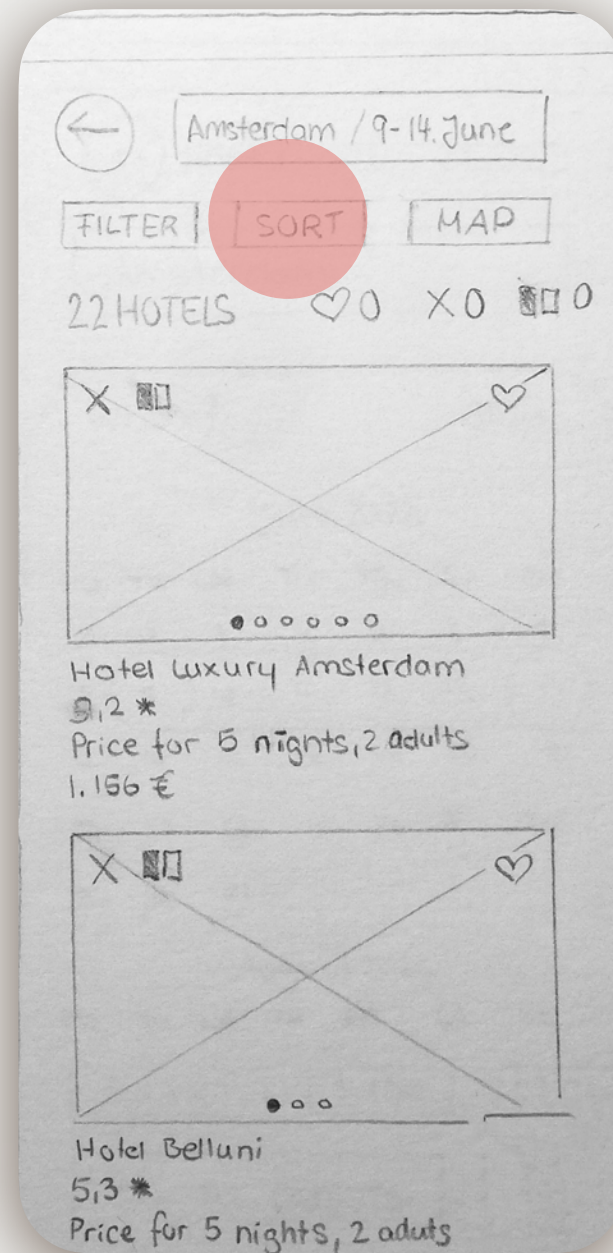 Amsterdam / 9-14. June
FILTER SORT MAP
22 HOTELS 0 X 0 0
Hotel Luxury Amsterdam
9,2 *
Price for 5 nignts, 2 adults
1.156 €
Hotel Belluni
5,3 *
Price for 5 nights, 2 aduts